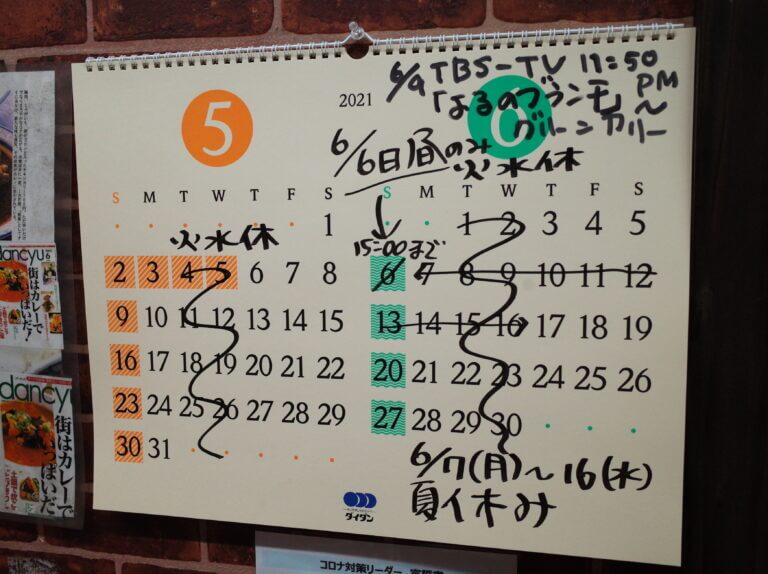 6/9 TBS-TV 11:50
PM
「よるのブランチ」～
グリーンカリー
5
2021
6
6/6日昼のみ
火水休
S M T W T F S
S M T W T F S
1
1 2 3 4 5
火水休
15:00まで
2 3 4 5 6 7 8
6 7 8 9 10 11 12
9 10 11 12 13 14 15
13 14 15 16 17 18 19
16 17 18 19 20 21 22
20 21 22 23 24 25 26
23 24 25 26 27 28 29
27 28 29 30
30 31
6/7(月)～16(水)
夏休み
ダイダン
コロナ対策リーダー
dancyu
街はカレーで
いっぱいだ!
dancyu
街はカレーで
いっぱいだ!